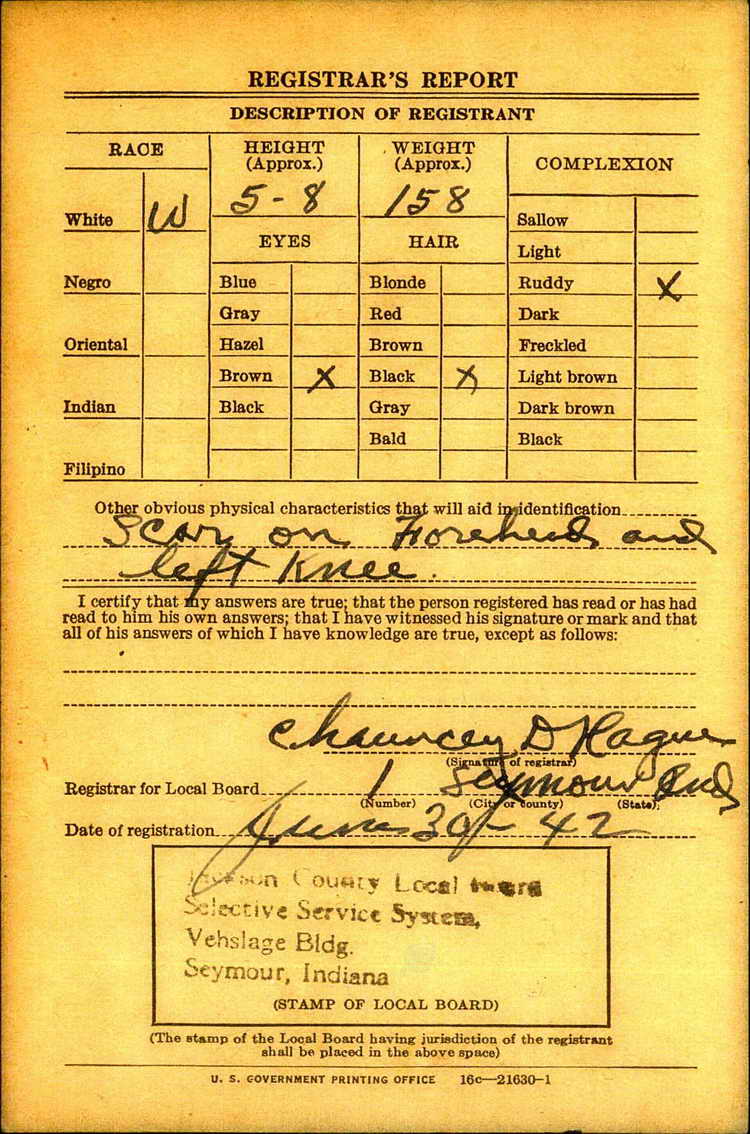 REGISTRAR'S REPORT
DESCRIPTION OF REGISTRANT
RACE
HEIGHT
(Approx.)
WEIGHT
(Approx.)
COMPLEXION
5-8
158
White W
Sallow
EYES
HAIR
Light
Negro
Blue
Blonde
Ruddy X
Gray
Red
Dark
Oriental
Hazel
Brown
Freckled
Brown X
Black X
Light brown
Indian
Black
Gray
Dark brown
Bald
Black
Filipino
Other obvious physical characteristics that will aid in identification
Scar on Forehead and
left Knee.
I certify that my answers are true; that the person registered has read or has had
read to him his own answers; that I have witnessed his signature or mark and that
all of his answers of which I have knowledge are true, except as follows:
Chauncey D Hague
(Signature of registrar)
Registrar for Local Board 1 Seymour Ind
(Number) (City or county) (State)
Date of registration June 30 - 42
Jackson County Local Board
Selective Service System,
Vehslage Bldg.
Seymour, Indiana
(STAMP OF LOCAL BOARD)
(The stamp of the Local Board having jurisdiction of the registrant
shall be placed in the above space)
U. S. GOVERNMENT PRINTING OFFICE 16c—21630-1